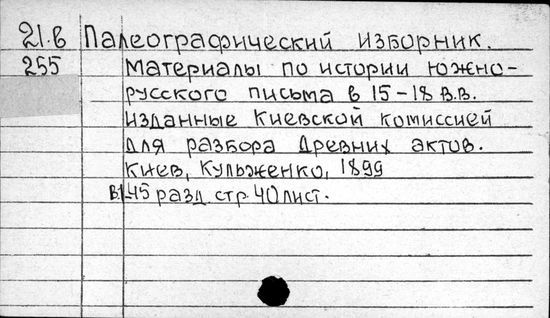 21.в Палеографический изборник.
255 Материалы по истории южно-
русского письма в 15-18 в.в.
изданные Киевской комиссией
для разбора Древних актов.
Киев, Кульженко, 1899
в1.45 разд. стр. 40 лист.